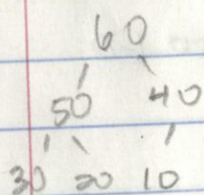 60
50 40
30 20 10